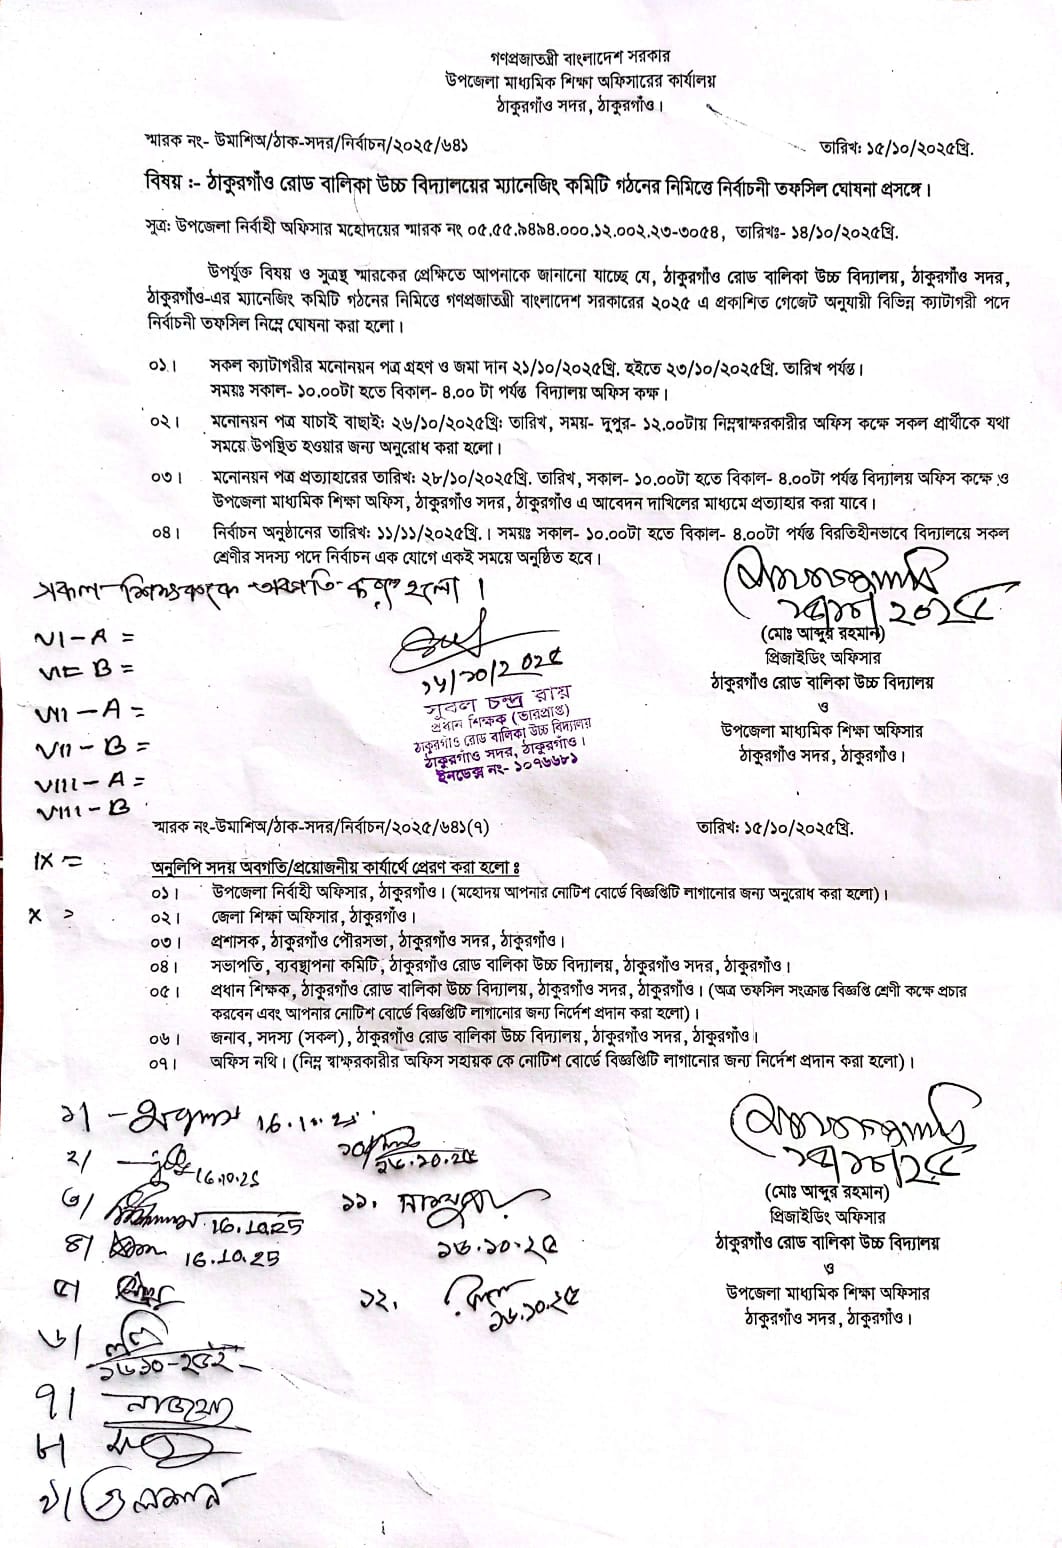 গণপ্রজাতন্ত্রী বাংলাদেশ সরকার
উপজেলা মাধ্যমিক শিক্ষা অফিসারের কার্যালয়
ঠাকুরগাঁও সদর, ঠাকুরগাঁও।
স্মারক নং- উমাশিঅ/ঠাক-সদর/নির্বাচন/২০২৫/৬৪১
তারিখ: ১৫/১০/২০২৫খ্রি.
বিষয় :- ঠাকুরগাঁও রোড বালিকা উচ্চ বিদ্যালয়ের ম্যানেজিং কমিটি গঠনের নিমিত্তে নির্বাচনী তফসিল ঘোষনা প্রসঙ্গে।
সুত্র: উপজেলা নির্বাহী অফিসার মহোদয়ের স্মারক নং ০৫.৫৫.৯৪৯৪.০০০.১২.০০২.২৩-৩০৫৪, তারিখঃ- ১৪/১০/২০২৫খ্রি.
উপর্যুক্ত বিষয় ও সুত্রস্থ স্মারকের প্রেক্ষিতে আপনাকে জানানো যাচ্ছে যে, ঠাকুরগাঁও রোড বালিকা উচ্চ বিদ্যালয়, ঠাকুরগাঁও সদর,
ঠাকুরগাঁও-এর ম্যানেজিং কমিটি গঠনের নিমিত্তে গণপ্রজাতন্ত্রী বাংলাদেশ সরকারের ২০২৫ এ প্রকাশিত গেজেট অনুযায়ী বিভিন্ন ক্যাটাগরী পদে
নির্বাচনী তফসিল নিম্নে ঘোষনা করা হলো।
০১। সকল ক্যাটাগরীর মনোনয়ন পত্র গ্রহণ ও জমা দান ২১/১০/২০২৫খ্রি. হইতে ২৩/১০/২০২৫খ্রি. তারিখ পর্যন্ত।
সময়ঃ সকাল- ১০.০০টা হতে বিকাল- ৪.০০ টা পর্যন্ত বিদ্যালয় অফিস কক্ষ।
০২। মনোনয়ন পত্র যাচাই বাছাই: ২৬/১০/২০২৫খ্রি: তারিখ, সময়- দুপুর- ১২.০০টায় নিম্নস্বাক্ষরকারীর অফিস কক্ষে সকল প্রার্থীকে যথা
সময়ে উপস্থিত হওয়ার জন্য অনুরোধ করা হলো।
০৩। মনোনয়ন পত্র প্রত্যাহারের তারিখ: ২৮/১০/২০২৫খ্রি. তারিখ, সকাল- ১০.০০টা হতে বিকাল- ৪.০০টা পর্যন্ত বিদ্যালয় অফিস কক্ষে ও
উপজেলা মাধ্যমিক শিক্ষা অফিস, ঠাকুরগাঁও সদর, ঠাকুরগাঁও এ আবেদন দাখিলের মাধ্যমে প্রত্যাহার করা যাবে।
০৪। নির্বাচন অনুষ্ঠানের তারিখ: ১১/১১/২০২৫খ্রি.। সময়ঃ সকাল- ১০.০০টা হতে বিকাল- ৪.০০টা পর্যন্ত বিরতিহীনভাবে বিদ্যালয়ে সকল
শ্রেণীর সদস্য পদে নির্বাচন এক যোগে একই সময়ে অনুষ্ঠিত হবে।
সকল শিক্ষককে অবগতি করা হলো।
VI-A =
VI- B =
VII -A =
VII - B =
VIII - A =
VIII - B
IX =
X =
১৬/১০/২০২৫
সুবল চন্দ্র রায়
প্রধান শিক্ষক (ভারপ্রাপ্ত)
ঠাকুরগাঁও রোড বালিকা উচ্চ বিদ্যালয়
ঠাকুরগাঁও সদর, ঠাকুরগাঁও।
ইনডেক্স নং- ১০৭৬৬৮১
১৫/১০/২০২৫
(মোঃ আব্দুর রহমান)
প্রিজাইডিং অফিসার
ঠাকুরগাঁও রোড বালিকা উচ্চ বিদ্যালয়
ও
উপজেলা মাধ্যমিক শিক্ষা অফিসার
ঠাকুরগাঁও সদর, ঠাকুরগাঁও।
স্মারক নং-উমাশিঅ/ঠাক-সদর/নির্বাচন/২০২৫/৬৪১(৭)
তারিখ: ১৫/১০/২০২৫খ্রি.
অনুলিপি সদয় অবগতি/প্রয়োজনীয় কার্যার্থে প্রেরণ করা হলো ঃ
০১। উপজেলা নির্বাহী অফিসার, ঠাকুরগাঁও। (মহোদয় আপনার নোটিশ বোর্ডে বিজ্ঞপ্তিটি লাগানোর জন্য অনুরোধ করা হলো)।
০২। জেলা শিক্ষা অফিসার, ঠাকুরগাঁও।
০৩। প্রশাসক, ঠাকুরগাঁও পৌরসভা, ঠাকুরগাঁও সদর, ঠাকুরগাঁও।
০৪। সভাপতি, ব্যবস্থাপনা কমিটি, ঠাকুরগাঁও রোড বালিকা উচ্চ বিদ্যালয়, ঠাকুরগাঁও সদর, ঠাকুরগাঁও।
০৫। প্রধান শিক্ষক, ঠাকুরগাঁও রোড বালিকা উচ্চ বিদ্যালয়, ঠাকুরগাঁও সদর, ঠাকুরগাঁও। (অত্র তফসিল সংক্রান্ত বিজ্ঞপ্তি শ্রেণী কক্ষে প্রচার
করবেন এবং আপনার নোটিশ বোর্ডে বিজ্ঞপ্তিটি লাগানোর জন্য নির্দেশ প্রদান করা হলো)।
০৬। জনাব, সদস্য (সকল), ঠাকুরগাঁও রোড বালিকা উচ্চ বিদ্যালয়, ঠাকুরগাঁও সদর, ঠাকুরগাঁও।
০৭। অফিস নথি। (নিম্ন স্বাক্ষরকারীর অফিস সহায়ক কে নোটিশ বোর্ডে বিজ্ঞপ্তিটি লাগানোর জন্য নির্দেশ প্রদান করা হলো)।
১। 16.10.25
২। 16.10.25
৩। 16.10.25
৪। 16.10.25
৫।
৬।
৭।
৮।
৯। গুলশান
১০। ১৬.১০.২৫
১১.
১৬.১০.২৫
১২. ১৬.১০.২৫
১৫/১০/২৫
(মোঃ আব্দুর রহমান)
প্রিজাইডিং অফিসার
ঠাকুরগাঁও রোড বালিকা উচ্চ বিদ্যালয়
ও
উপজেলা মাধ্যমিক শিক্ষা অফিসার
ঠাকুরগাঁও সদর, ঠাকুরগাঁও।